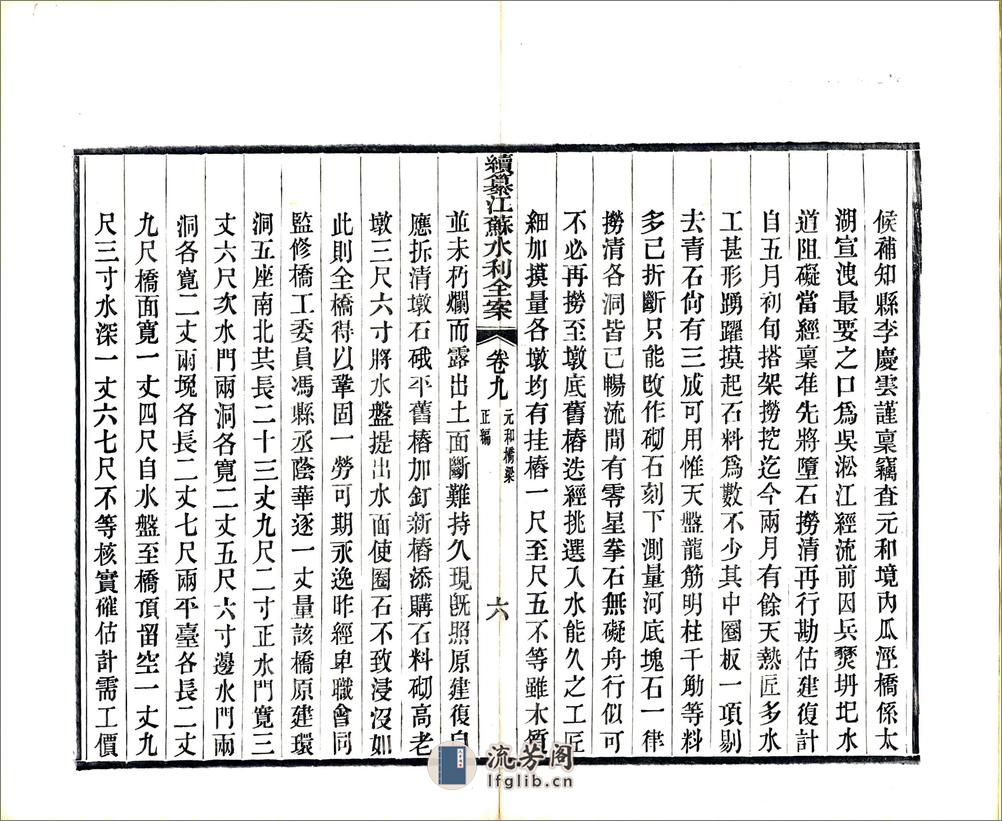 候補知縣李慶雲謹稟竊查元和境內瓜涇橋係太
湖宣洩最要之口爲吳淞江經流前因兵燹坍圮水
道阻礙當經稟准先將墮石撈清再行勘估建復計
自五月初旬搭架撈挖迄今兩月有餘天熱匠多水
工甚形踴躍摸起石料爲數不少其中圈板一項剔
去青石尙有三成可用惟天盤龍筋明柱千觔等料
多已折斷只能改作砌石刻下測量河底塊石一律
撈清各洞皆已暢流間有零星拳石無礙舟行似可
不必再撈至墩底舊樁迭經挑選入水能久之工匠
細加摸量各墩均有挂樁一尺至尺五不等雖木質
續纂江蘇水利全案 卷九 元和橋梁 正編 六
並未朽爛而露出土面斷難持久現旣照原建復自
應拆清墩石硪平舊樁加釘新樁添購石料砌高老
墩三尺六寸將水盤提出水面使圈石不致浸沒如
此則全橋得以鞏固一勞可期永逸昨經卑職會同
監修橋工委員馮縣丞蔭華逐一丈量該橋原建環
洞五座南北共長二十三丈九尺二寸正水門寬三
丈六尺次水門兩洞各寬二丈五尺六寸邊水門兩
洞各寬二丈兩堍各長二丈七尺兩平臺各長二丈
九尺橋面寬一丈四尺自水盤至橋頂留空一丈九
尺三寸水深一丈六七尺不等核實確估計需工價
流芳阁
lfglib.cn